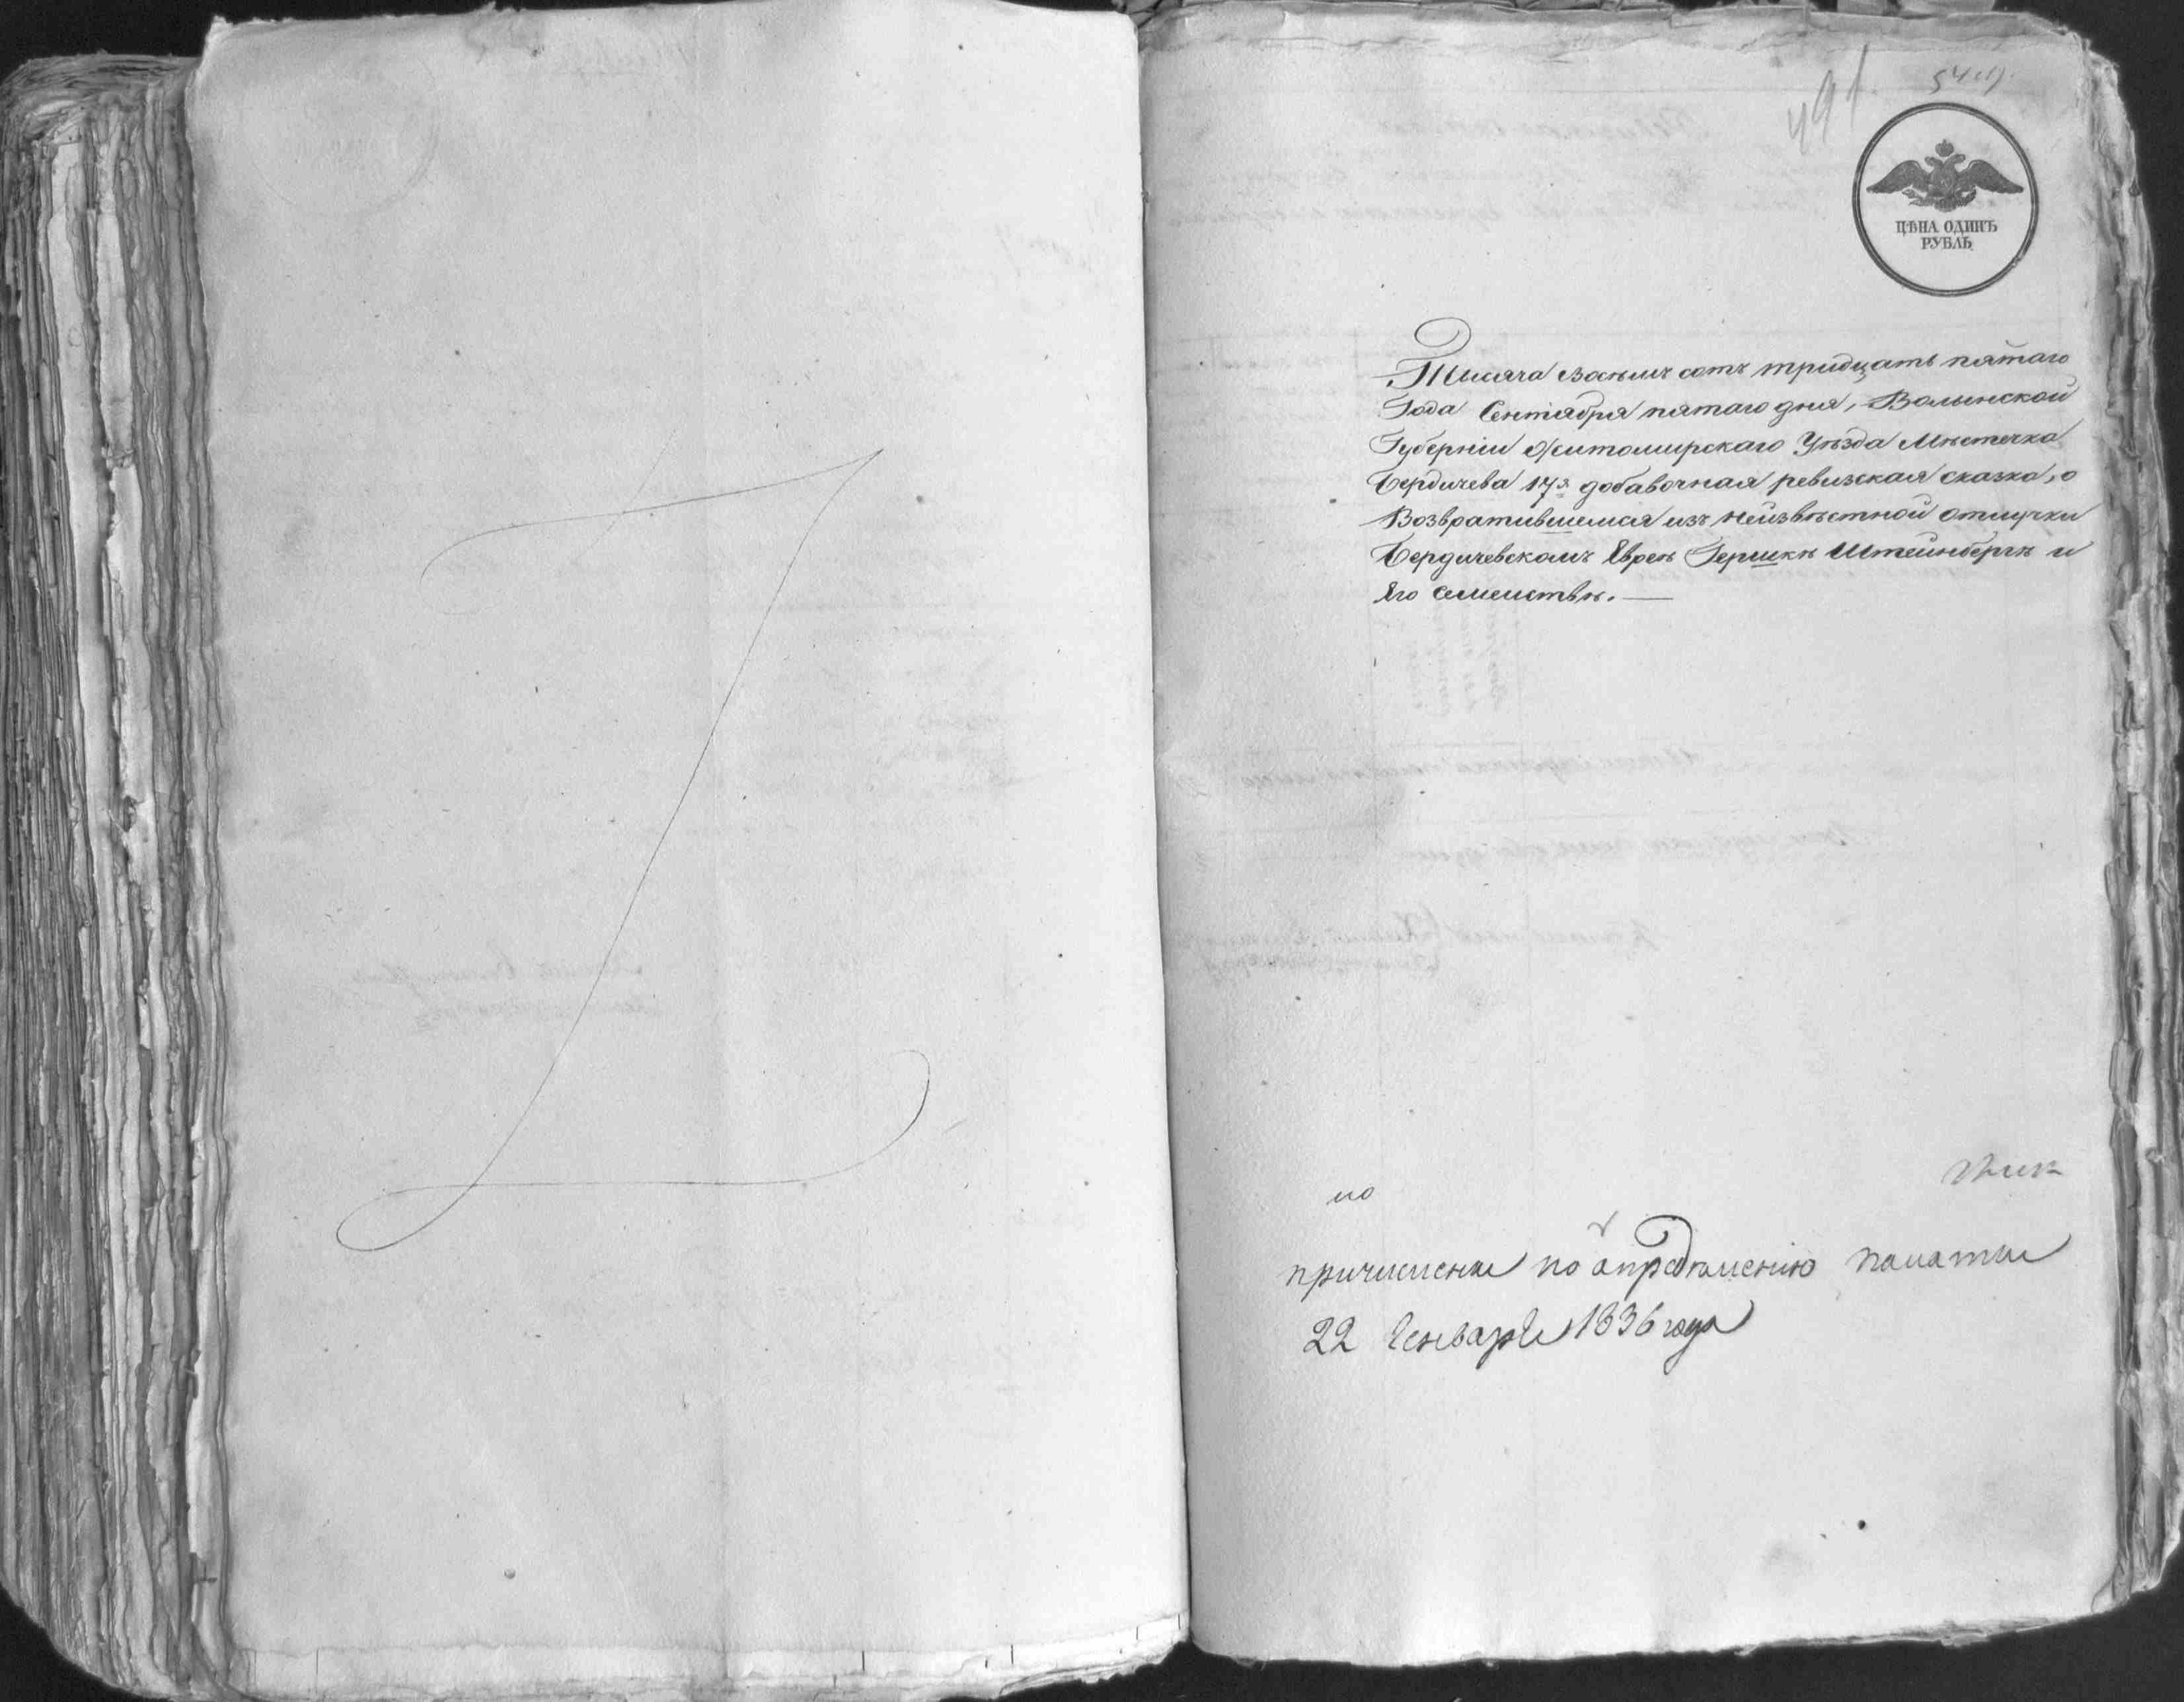 491.
ЦѢНА ОДИНЪ
РУБЛЬ
Тысяча восемъ сотъ тридцать пятаго
Года Сентября пятаго дня, Волынской
Губерніи Житомирскаго Уѣзда Мѣстечка
Бердичева 17я добавочная ревизская сказка, о
Возвратившемся изъ неизвѣстной отлучки
Бердичевскомъ Евреѣ Гершкѣ Штейнбергѣ и
Его семействѣ.—
по
причислены по определению палаты
22 Генваря 1836 года